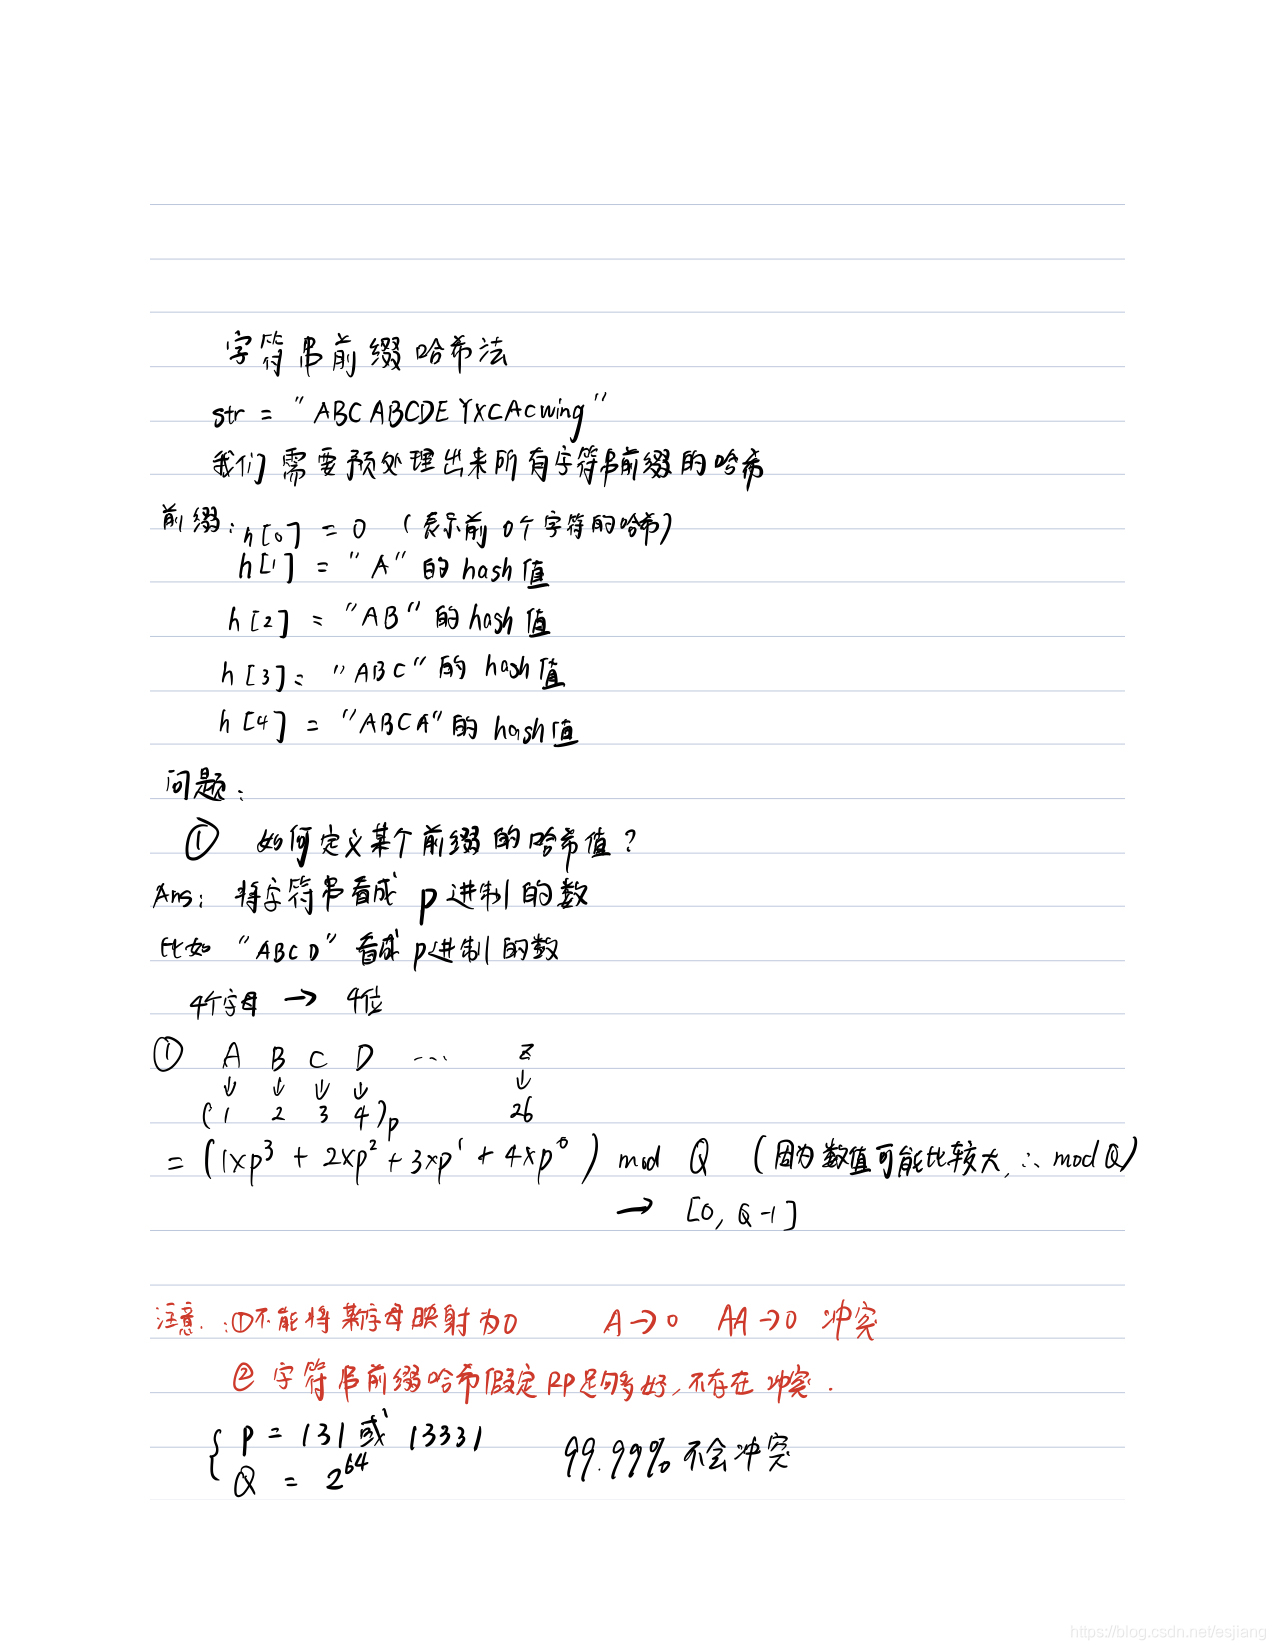 字符串前缀哈希法
str = "ABCABCDEYXCAcwing"
我们需要预处理出来所有字符串前缀的哈希
前缀: h[0] = 0 (表示前0个字符的哈希)
h[1] = "A"的hash值
h[2] = "AB"的hash值
h[3] = "ABC"的hash值
h[4] = "ABCA"的hash值
问题:
① 如何定义某个前缀的哈希值?
Ans: 将字符串看成 p进制的数
比如 "ABCD" 看成p进制的数
4个字母 → 4位
① A B C D ... Z
↓ ↓ ↓ ↓ ↓
(1 2 3 4)p 26
= (1×p³ + 2×p² + 3×p¹ + 4×p⁰) mod Q (因为数值可能比较大, ∴ mod Q)
→ [0, Q-1]
注意: ①不能将某字母映射为0 A→0 AA→0 冲突
② 字符串前缀哈希假定RP足够好, 不存在冲突.
{ p = 131 或 13331
Q = 2⁶⁴ 99.99% 不会冲突
https://blog.csdn.net/esjiang